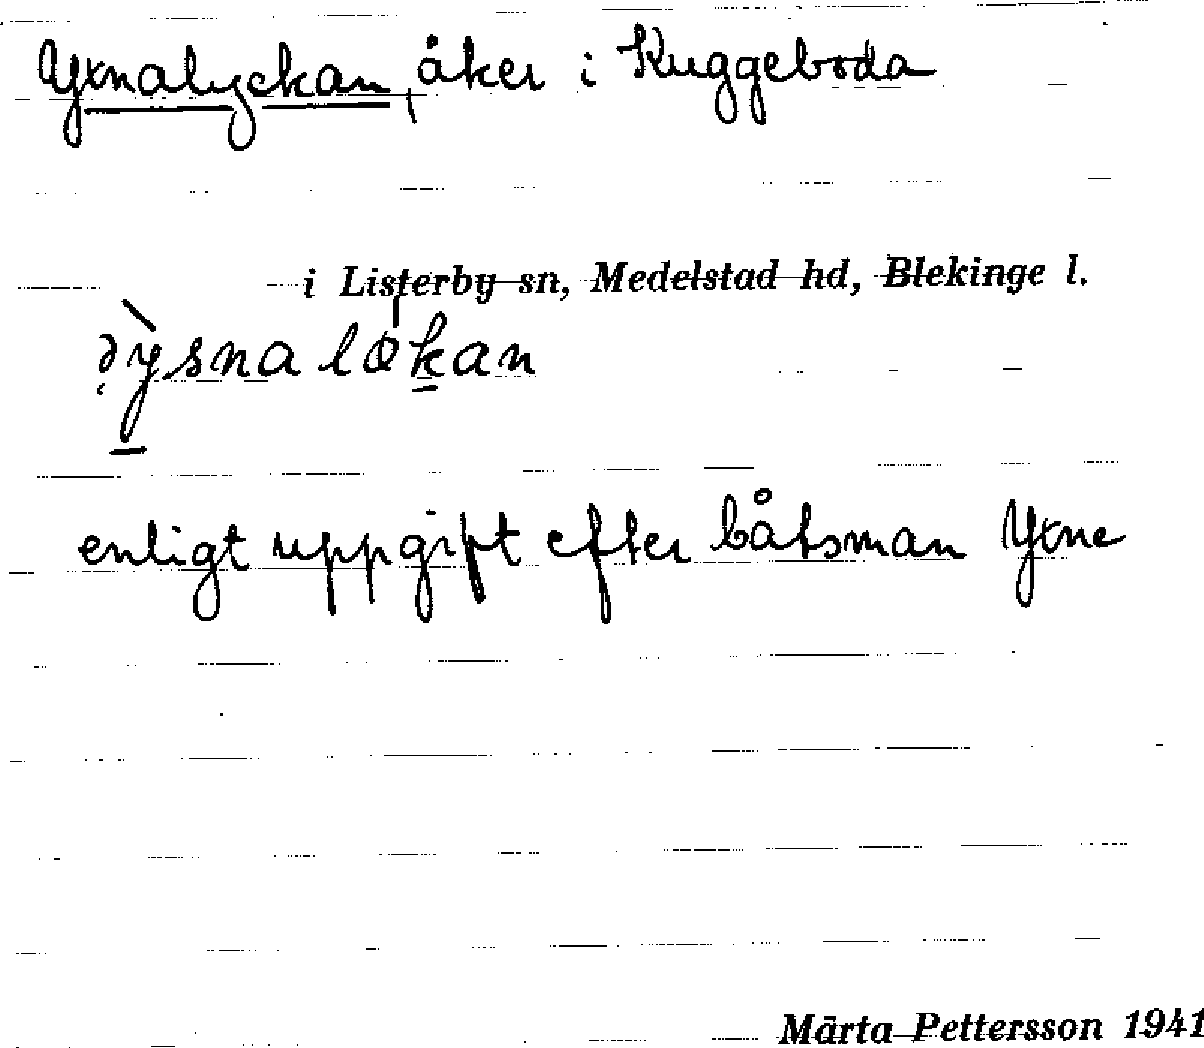 Yxnalyckan, åker i Kuggeboda
i Listerby sn, Medelstad hd, Blekinge l.
enligt uppgift efter båtsman Yxne
Märta Pettersson 1941